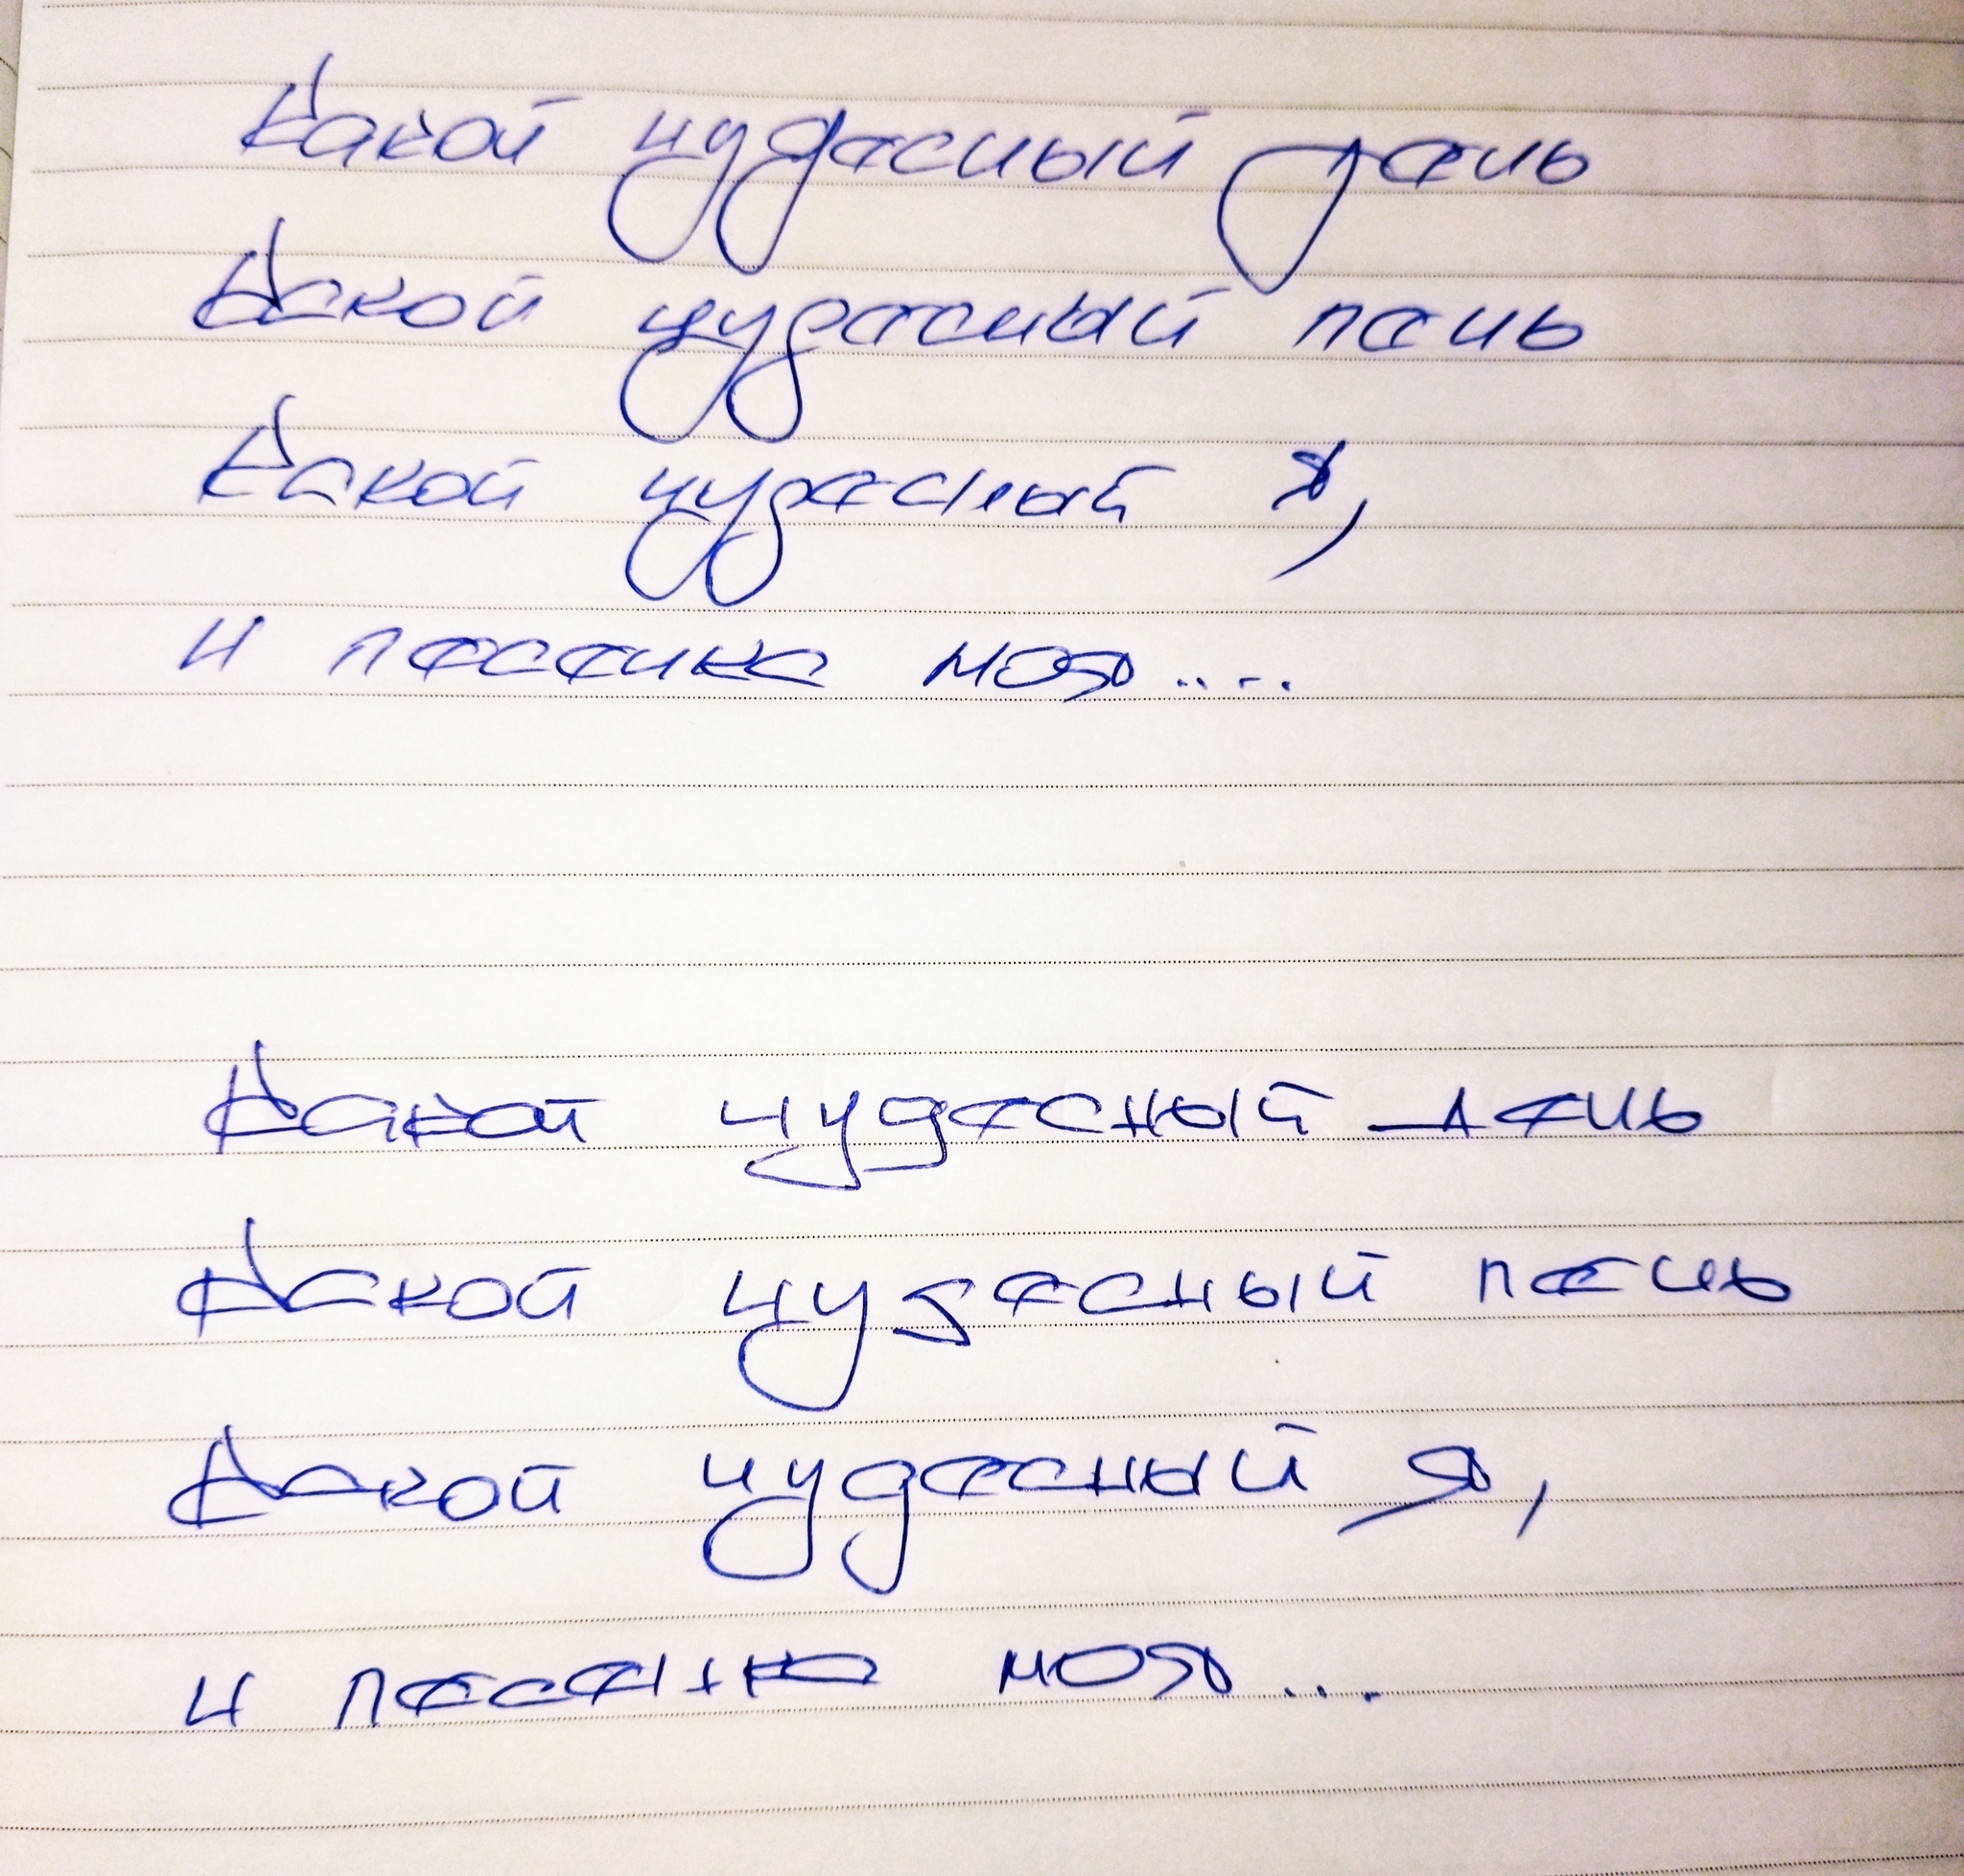 Какой чудесный день
Какой чудесный пень
Какой чудесный я,
и песенка моя....
Какой чудесный день
Какой чудесный пень
Какой чудесный я,
и песенка моя...